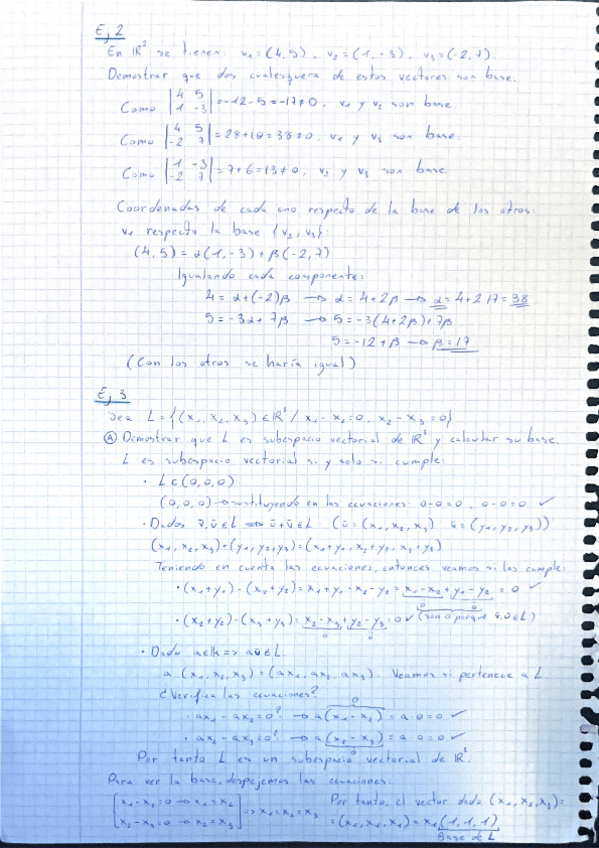 Ej 2
En ℝ² se tienen: v₁=(4,5), v₂=(1,-3), v₃=(-2,7).
Demostrar que dos cualesquiera de estos vectores son base.
Como |4 5; 1 -3| = -12-5 = -17≠0, v₁ y v₂ son base.
Como |4 5; -2 7| = 28+10 = 38≠0, v₁ y v₃ son base.
Como |1 -3; -2 7| = 7+6 = 13≠0, v₂ y v₃ son base.
Coordenadas de cada uno respecto de la base de los otros:
v₁ respecto la base {v₂, v₃}:
(4,5) = α(1,-3) + β(-2,7)
Igualando cada componente:
4 = α+(-2)β → α = 4+2β → α = 4+2·17 = 38
5 = -3α+7β → 5 = -3(4+2β)+7β
5 = -12+β → β=17
(Con los otros se haría igual)
Ej 3
Sea L = {(x₁, x₂, x₃) ∈ ℝ³ / x₁-x₂=0, x₂-x₃=0}
Ⓐ Demostrar que L es subespacio vectorial de ℝ³ y calcular su base.
L es subespacio vectorial si y solo si cumple:
· L ⊂ (0,0,0)
(0,0,0) → sustituyendo en las ecuaciones 0-0=0, 0-0=0 ✓
· Dados v̄,ū∈L ⇒ ū+v̄∈L (ū=(x₁,x₂,x₃) v̄=(y₁,y₂,y₃))
(x₁,x₂,x₃)+(y₁,y₂,y₃)=(x₁+y₁,x₂+y₂,x₃+y₃)
Teniendo en cuenta las ecuaciones, entonces veamos si las cumple:
· (x₁+y₁)-(x₂+y₂)=x₁+y₁-x₂-y₂=x₁-x₂+y₁-y₂=0 ✓
0 0
· (x₂+y₂)-(x₃+y₃)=x₂-x₃+y₂-y₃=0 ✓ (son 0 porque v̄,ū∈L)
0 0
· Dado a∈k ⇒ aū∈L.
a(x₁,x₂,x₃)=(ax₁,ax₂,ax₃). Veamos si pertenece a L.
¿Verifica las ecuaciones?
0
· ax₁-ax₂=0? → a(x₁-x₂)=a·0=0 ✓
· ax₂-ax₃=0? → a(x₂-x₃)=a·0=0 ✓
0
Por tanto L es un subespacio vectorial de ℝ³.
Para ver la base, despejemos las ecuaciones:
[x₁-x₂=0 → x₁=x₂; x₂-x₃=0 → x₂=x₃] → x₁=x₂=x₃ Por tanto, el vector dado (x₁,x₂,x₃)=
=(x₁,x₁,x₁)=x₁(1,1,1)
Base de L